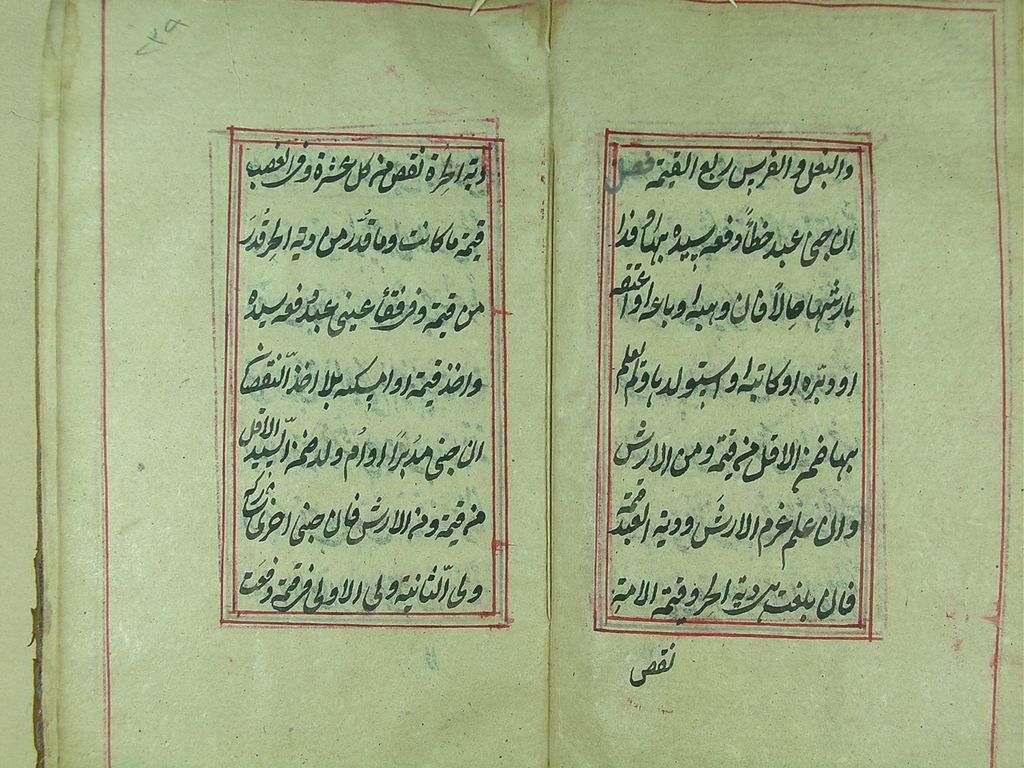 والبغل والفرس ربع القيمة فصل
ان جنى عبد خطأ دفعه سيده بها او فداه
بارشها حالا فان وهبه او باعه او اعتقه
او دبره او كاتبه او استولدها ولم يعلم
بها ضمن الاقل من قيمته ومن الارش
وان علم غرم الارش ودية العبد قيمته
فان بلغت هي دية الحر وقيمة الامة
نقص
دية الحرة نقص من كل عشرة وفي الغصب
قيمة ما كانت وما قدر من دية الحر قدر
من قيمته وفي فقأ عيني عبد دفعه سيده
واخذ قيمته او امسكه بلا اخذ النقصان
ان جنى مدبرا او ام ولد ضمن السيد الاقل
من قيمته ومن الارش فان جنى اخرى شارك
ولي الثانية ولي الاولى في قيمة دفعت